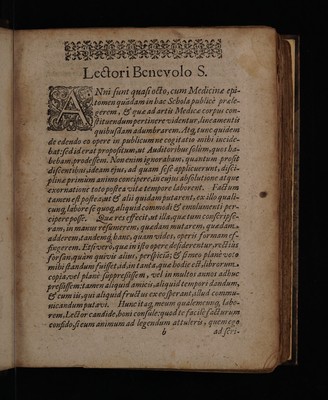 Lectori Benevolo S.
ANni sunt quasi octo, cum Medicinæ epi-
tomen quādam in hac Schola publicè præle-
gerem, & quæ ad artis Medicæ corpus con-
stituendum pertinere videntur, lineamentis
quibusdam adumbrarem. Atq, tunc quidem
de edendo eo opere in publicum ne cogitatio mihi incide-
bat: sed id erat propositum, ut Auditoribus solùm, quos ha-
bebam, prodessem. Non enim ignorabam, quantum prosit
discentibus ideam ejus, ad quam sese applicuerunt, disci-
plinæ primùm animo concipere, in cujus absolutione atque
exornatione toto postea vitæ tempore laborent. Factum
tamen est postea, ut & alii quidam putarent, ex illo quali-
cunq, labore se quoq, aliquid commodi & emolumenti per-
cipere posse. Quæ res effecit, ut illa, quæ tum conscripse-
ram, in manus resumerem, quædam mutarem, quædam
adderem, tandemq, hanc, quam vides, operis formam ef-
fingerem. Etsi verò, quæ in isto opere desiderentur, rectius
forsan, quàm quivis alius, perspiciā; & si meo planè voto
mihi standum fuisset, id, in tanta, quæ hodie est, librorum
copia, vel planè suppressissem, vel in multos annos adhuc
pressissem: tamen aliquid amicis, aliquid tempori dandum,
& cum iis, qui aliquid fructus ex eo sperant, illud commu-
nicandum putavi. Hunc itaq, meum qualemcunq, labo-
rem, Lector candide, boni consule: quod te facilè facturum
confido, si eum animum ad legendum attuleris, quem ego
b ad scri-